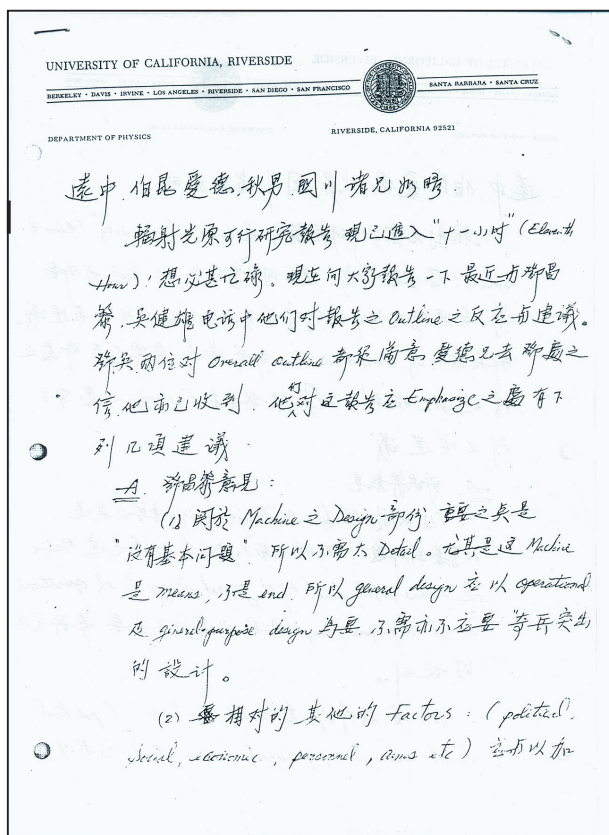 UNIVERSITY OF CALIFORNIA, RIVERSIDE
BERKELEY · DAVIS · IRVINE · LOS ANGELES · RIVERSIDE · SAN DIEGO · SAN FRANCISCO
SANTA BARBARA · SANTA CRUZ
DEPARTMENT OF PHYSICS
RIVERSIDE, CALIFORNIA 92521
遠中.伯昆.愛德.秋男.國川諸兄如晤
輻射光原可行研究報告 現已進入"十一小时" (Eleventh
Hour)! 想必甚忙碌。現在向大家報告一下最近与鄧昌
黎.吳健雄电话中他们对報告之 Outline 之反应与建議。
鄧吳兩位对 Overall outline 都很滿意.愛德兄去鄧處之
信.他亦已收到.他们对这報告在 Emphasize 之處有下
列几項建議
A. 鄧昌黎意見:
(1) 関於 Machine 之 Design 部份 重要之点是
"没有基本问題" 所以不需太 Detail。尤其是这 Machine
是 means, 不是 end. 所以 general design 应以 operational
及 general-purpose design 為要.不需亦不应要"奇兵突出
的設计。
(2) 相对的 其他的 Factors: (political,
social, economic, personnel, aims etc) 应予以加